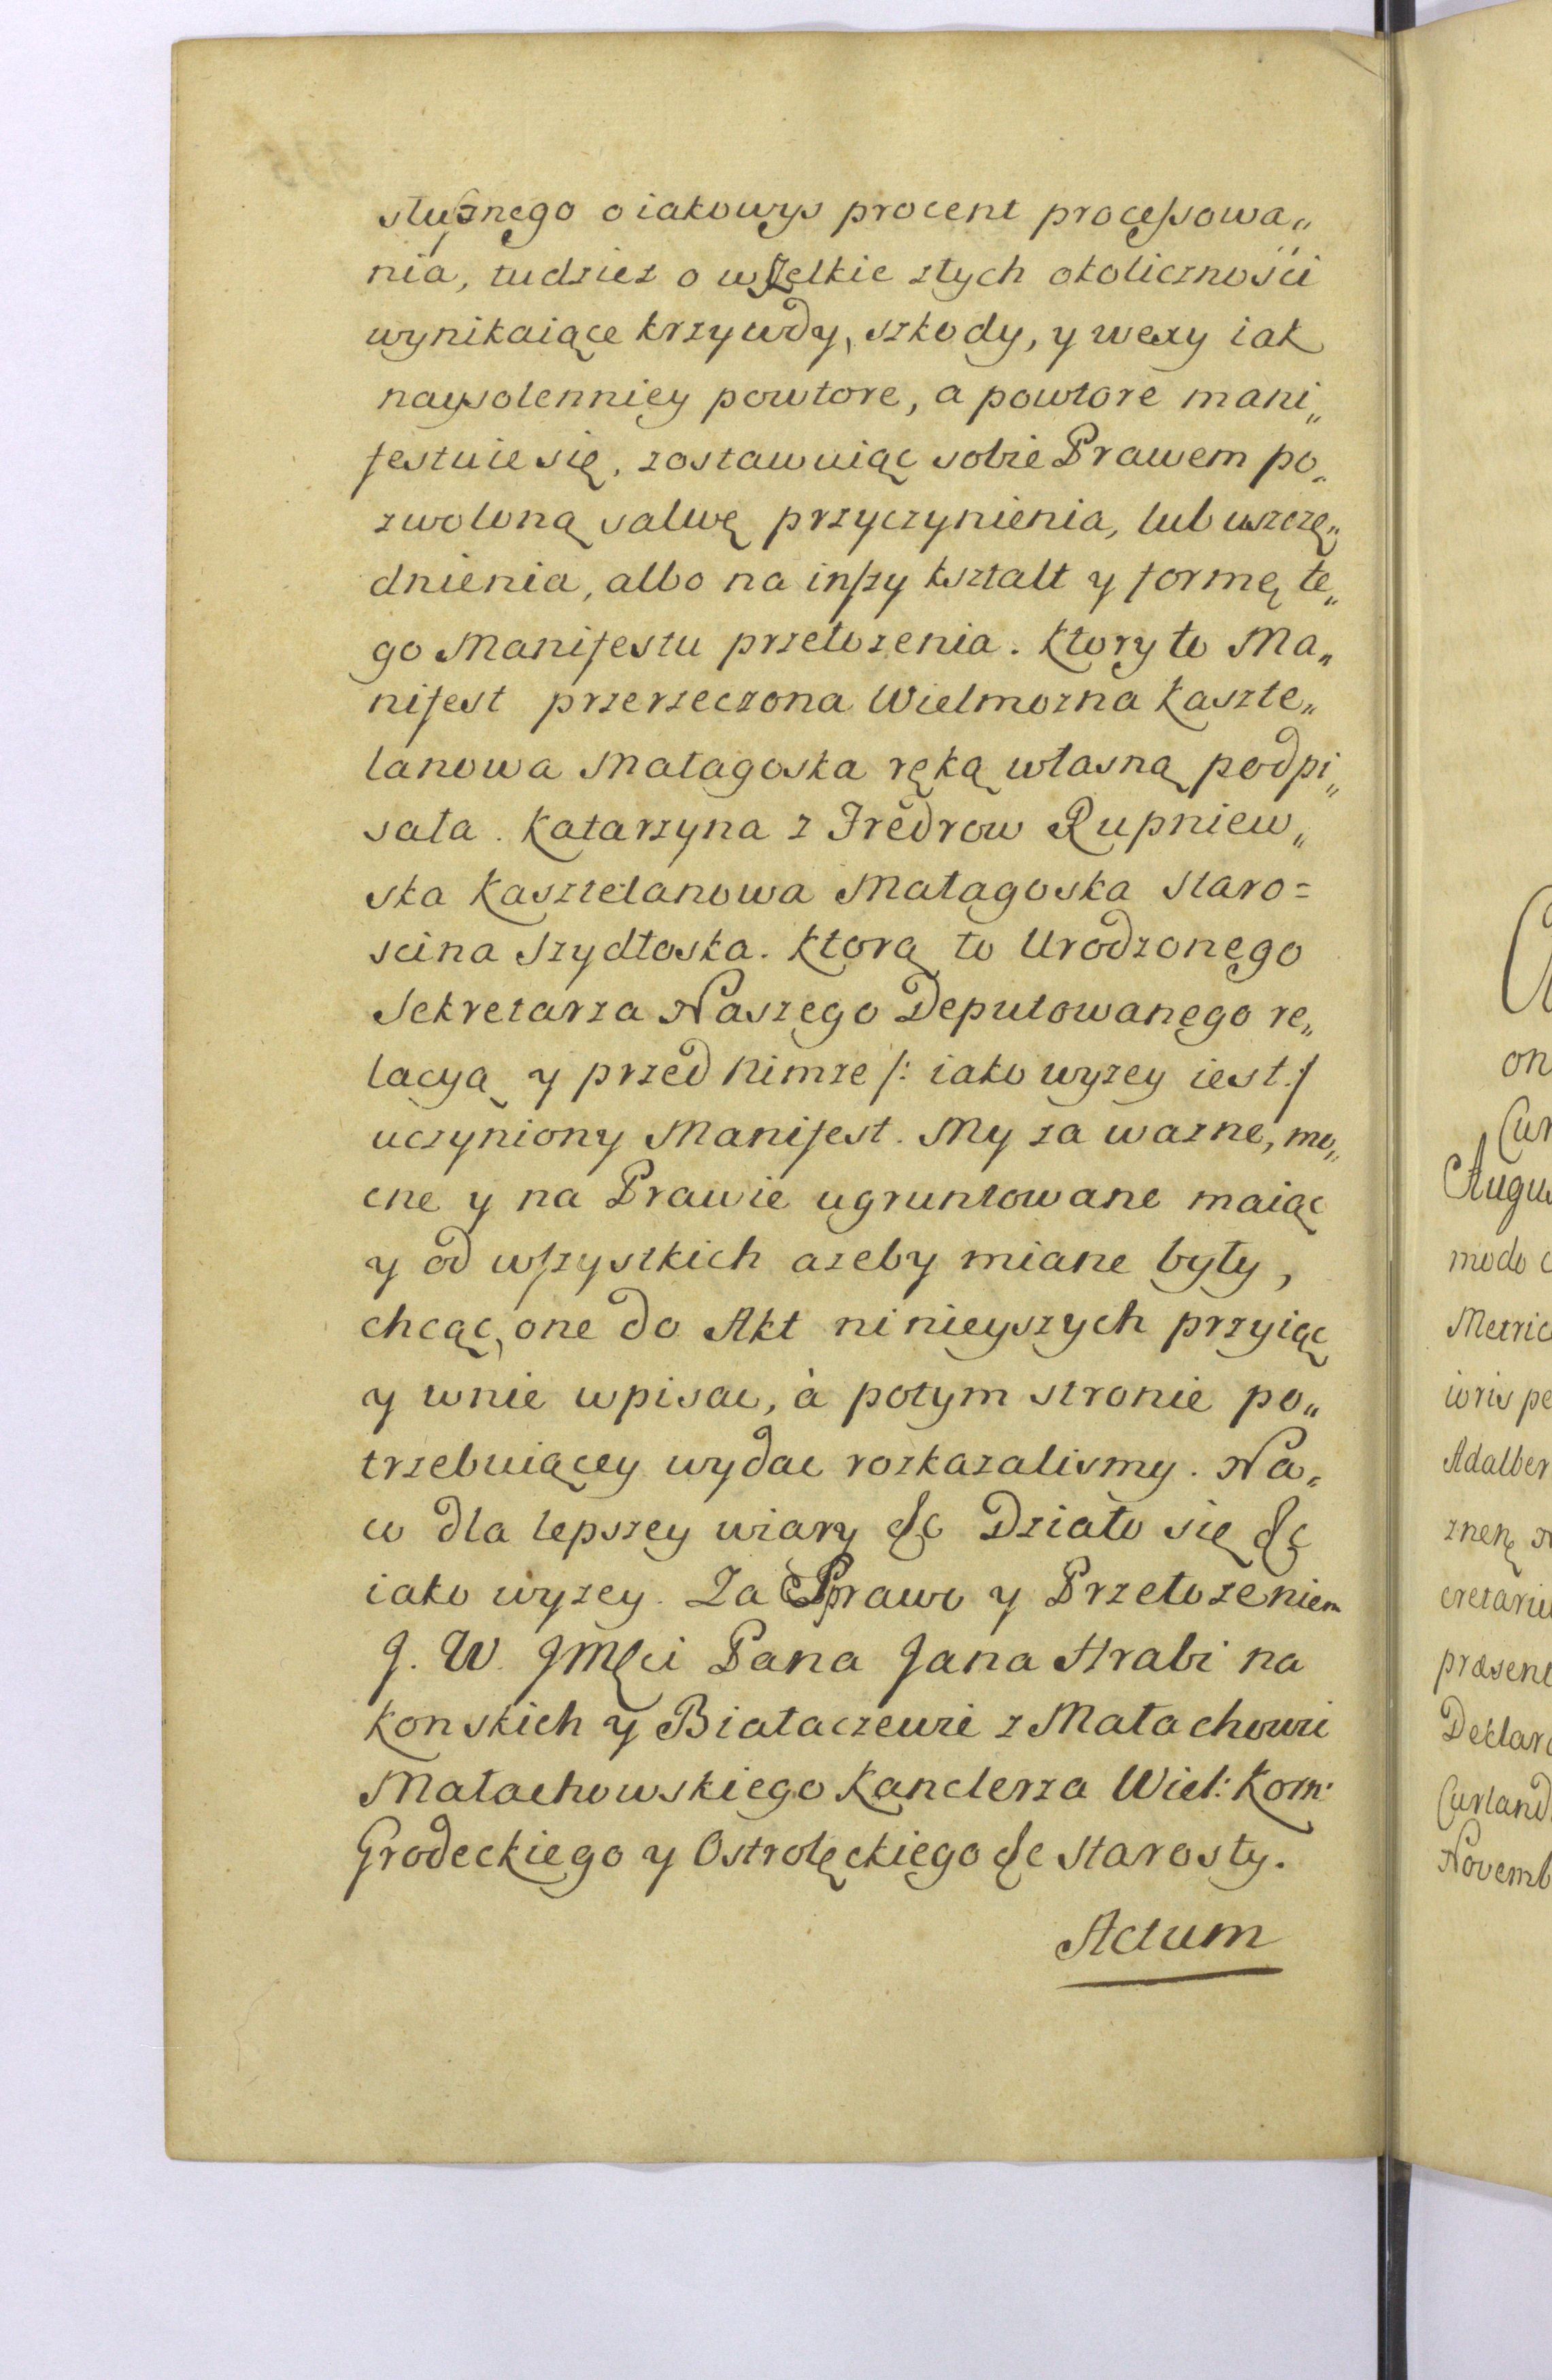 słusznego o iakowys procent processowa„
nia, tudziez o wszelkie ztych okolicznośći
wynikaiące krzywdy, szkody, y wexy iak
naysolenniey powtore, a powtore mani„
festuie się, zostawuiąc sobie Prawem po„
zwoloną salwę przyczynienia, lub uszczę„
dnienia, albo na inszy kształt y formę te„
go Manifestu przełozenia. Ktory to Ma„
nifest przerzeczona Wielmozna Kaszte„
lanowa Małagoska ręką własną podpi„
sała. Katarzyna z Fredrow Rupniew„
ska Kasztelanowa Małagoska Staro=
scina Szydłoska. Ktorą to Urodzonego
Sekretarza Naszego Deputowanego re„
lacyą y przed Nimze /: iako wyzey iest :/
uczyniony Manifest. My za wazne, mo„
cne y na Prawie ugruntowane maiąc
y od wszystkich azeby miane były,
chcąc, one do Akt ninieyszych przyiąc
y wnie wpisac, à potym stronie po„
trzebuiącey wydac rozkazalismy. Na„
co dla lepszey wiary &c Działo się &c
iako wyzey. Za Sprawo y Przełozeniem
J. W. JMsci Pana Jana Hrabi na
Konskich y Białaczewie z Małachowic
Małachowskiego Kanclerza Wiel: Kom:
Grodeckiego y Ostrołęckiego &c Starosty.
Actum
on
Cur
Augu
modo
Metric
ioris pe
Adalber
znen
cretariu
præsent
Declara
Curland
Novemb